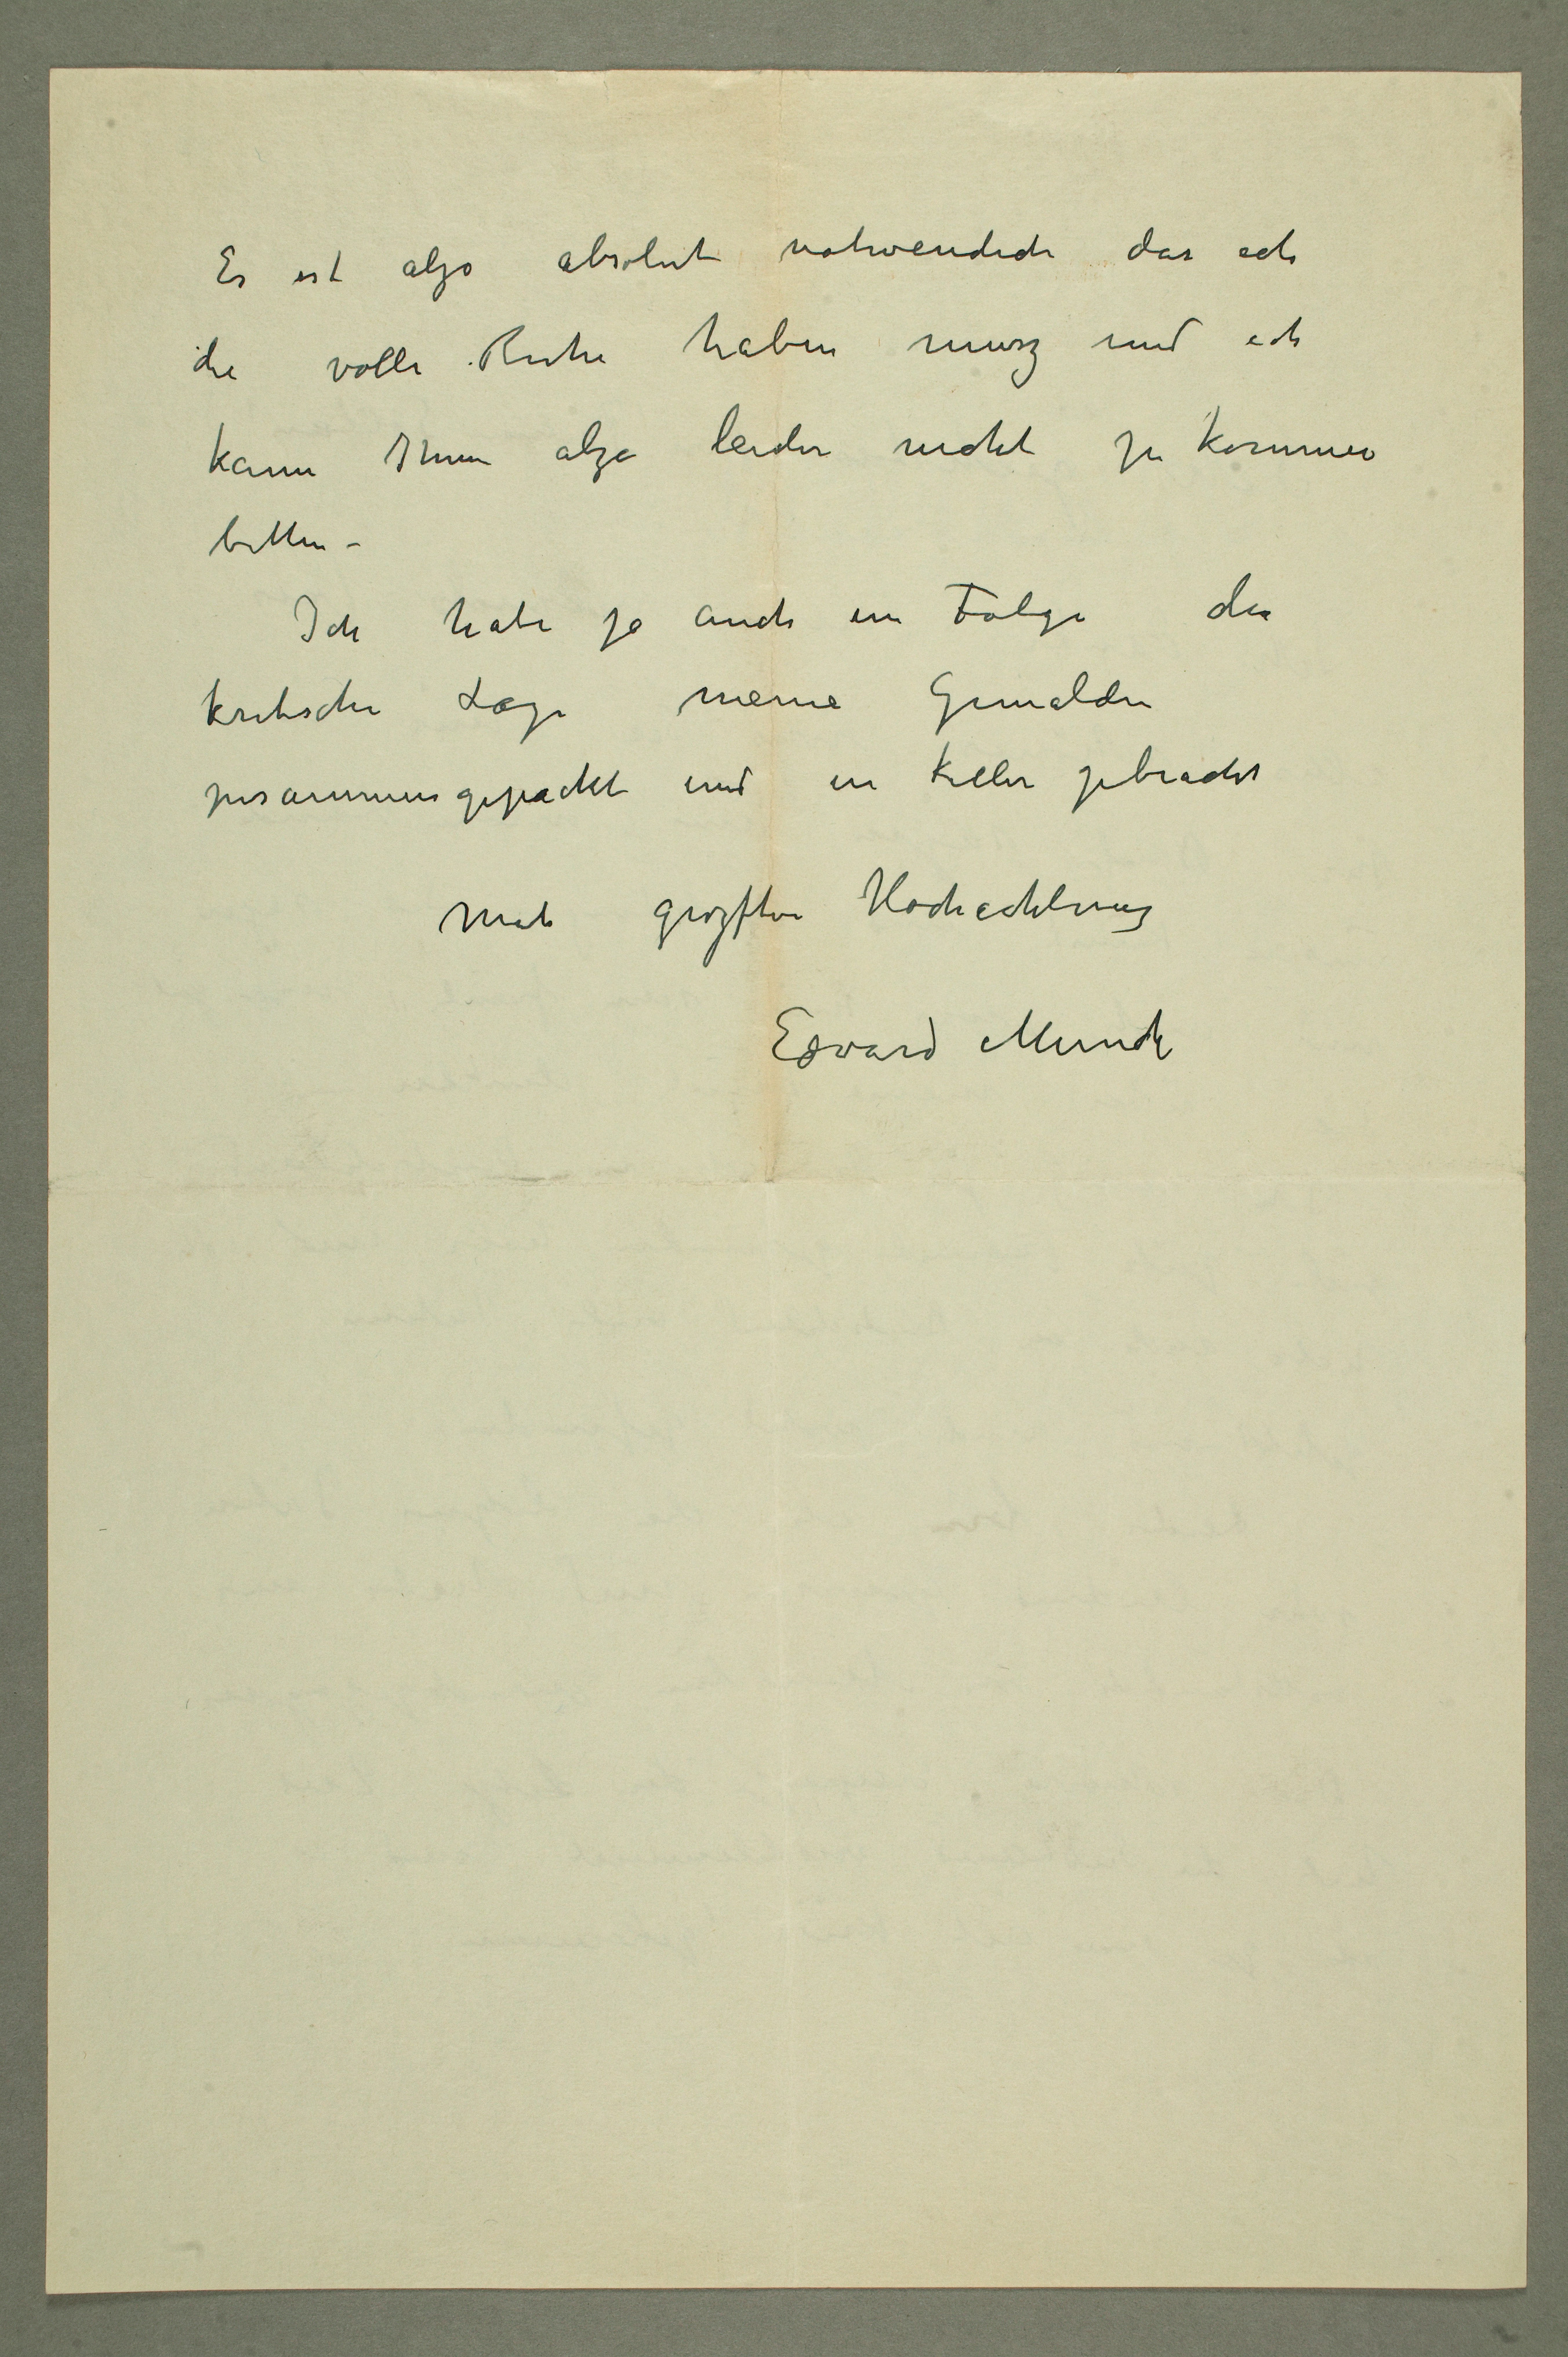 Es ist alzo absolut notwendich das ich
die volle Ruhe haben musz und ich
kann Ihnen alzo leider nicht zu kommen
bitten –
Ich habe ja auch in Folge der
kritische Lage meine Gemälden
zusammengepackt und in Keller gebracht
Mit grözster Hochachtung
Edvard Munch